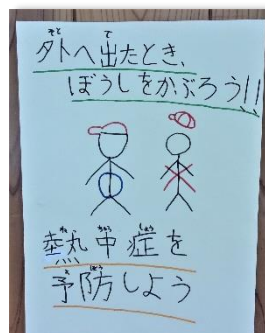 外へ出たとき、
ぼうしをかぶろう!!
熱中症を
予防しよう